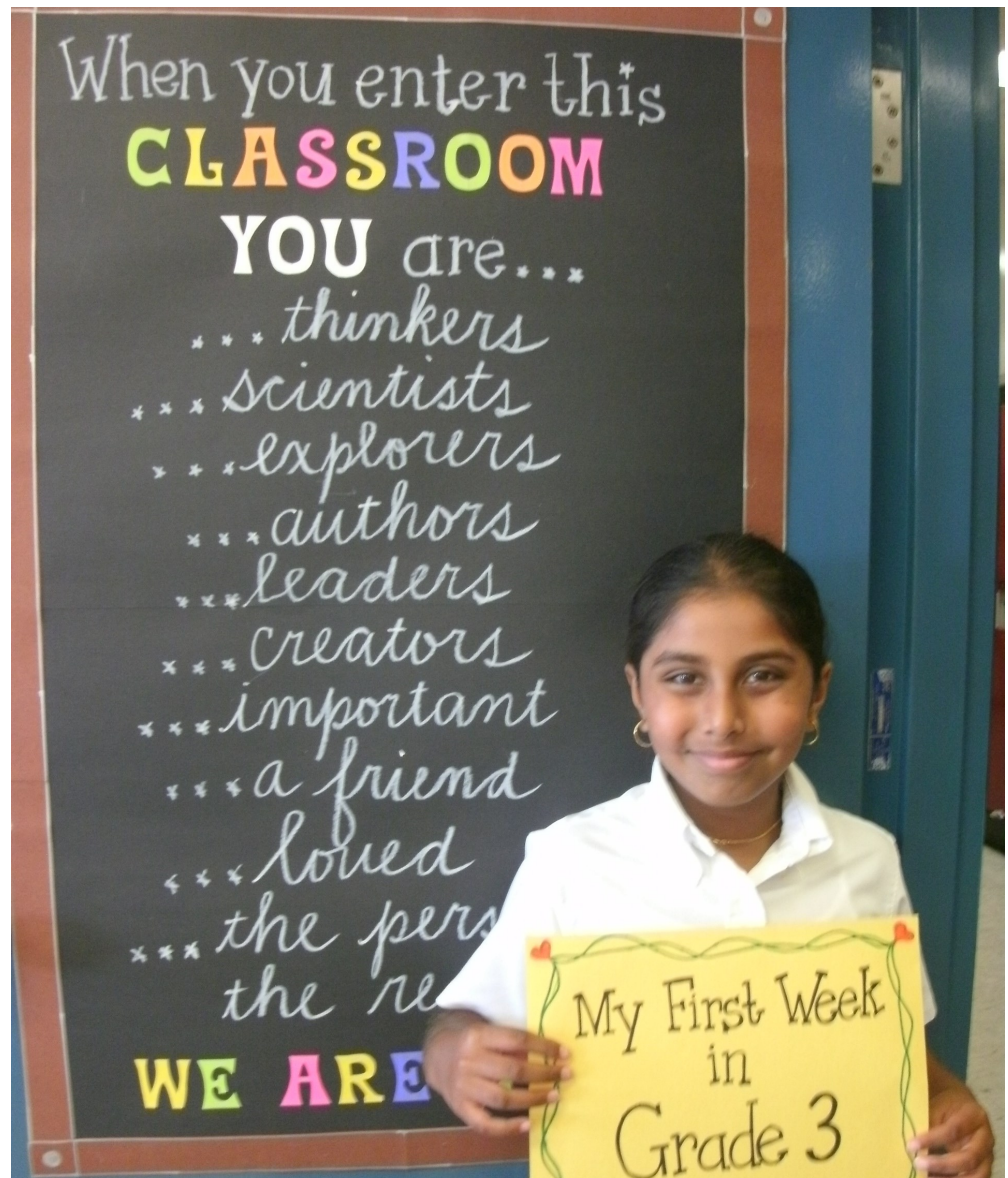 When you enter this
CLASSROOM
YOU are...
...thinkers
...scientists
...explorers
...authors
...leaders
...creators
...important
...a friend
...loved
...the
the
WE ARE
My First Week
in
Grade 3